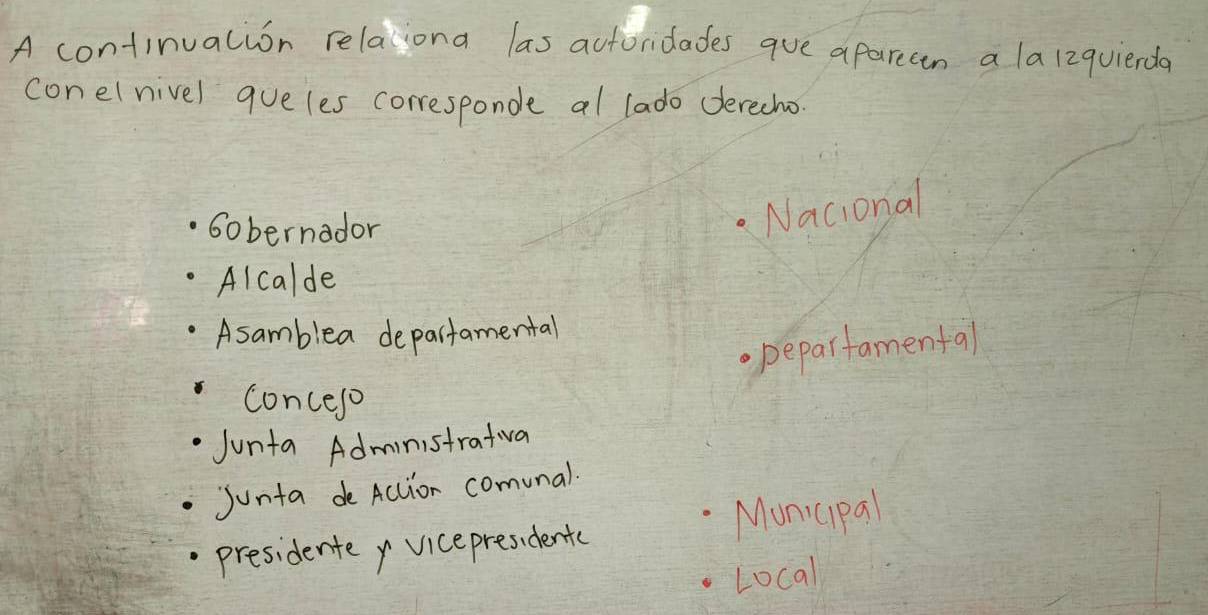 A continuación relaciona las autoridades que aparecen a la izquierda
con el nivel que les corresponde al lado derecho.
• Gobernador
• Alcalde
• Asamblea departamental
• Concejo
• Junta Administrativa
• Junta de Acción comunal.
• presidente y vicepresidente
• Nacional
• Departamental
• Municipal
• Local